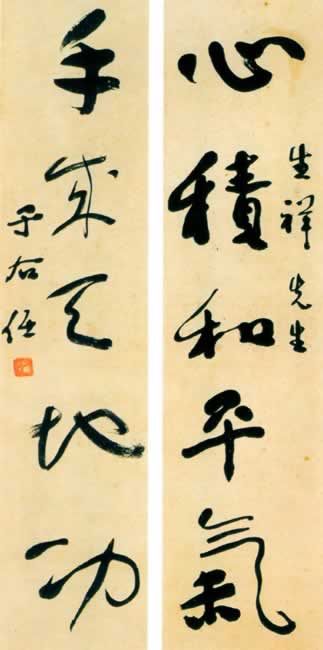 心積和平氣
生祥先生
手成天地功
于右任